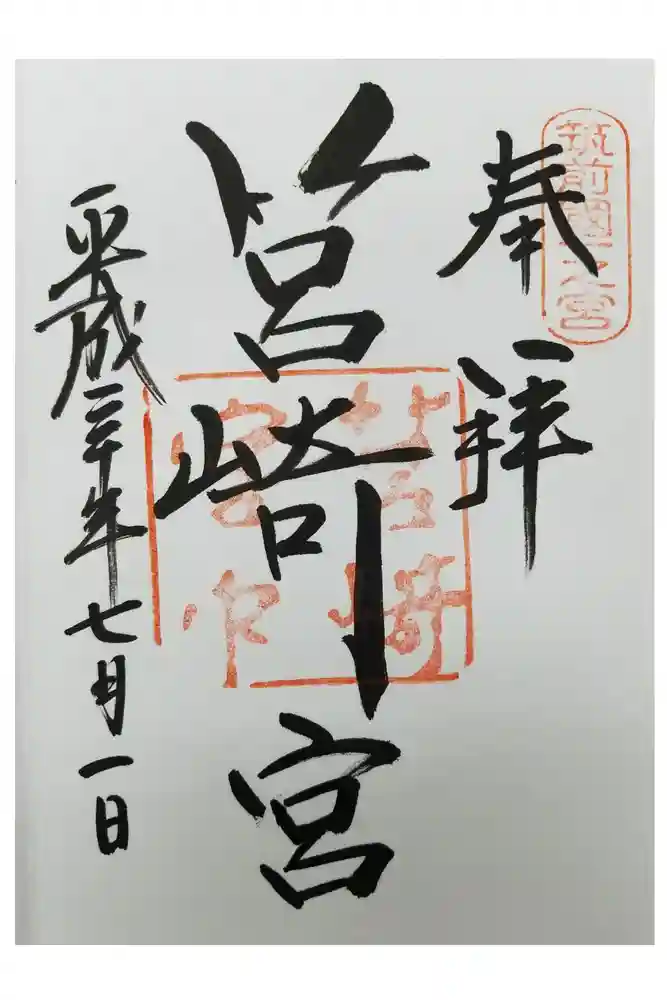 筑前國一之宮
奉拝
筥崎宮
筥崎宮印
平成三十年七月一日